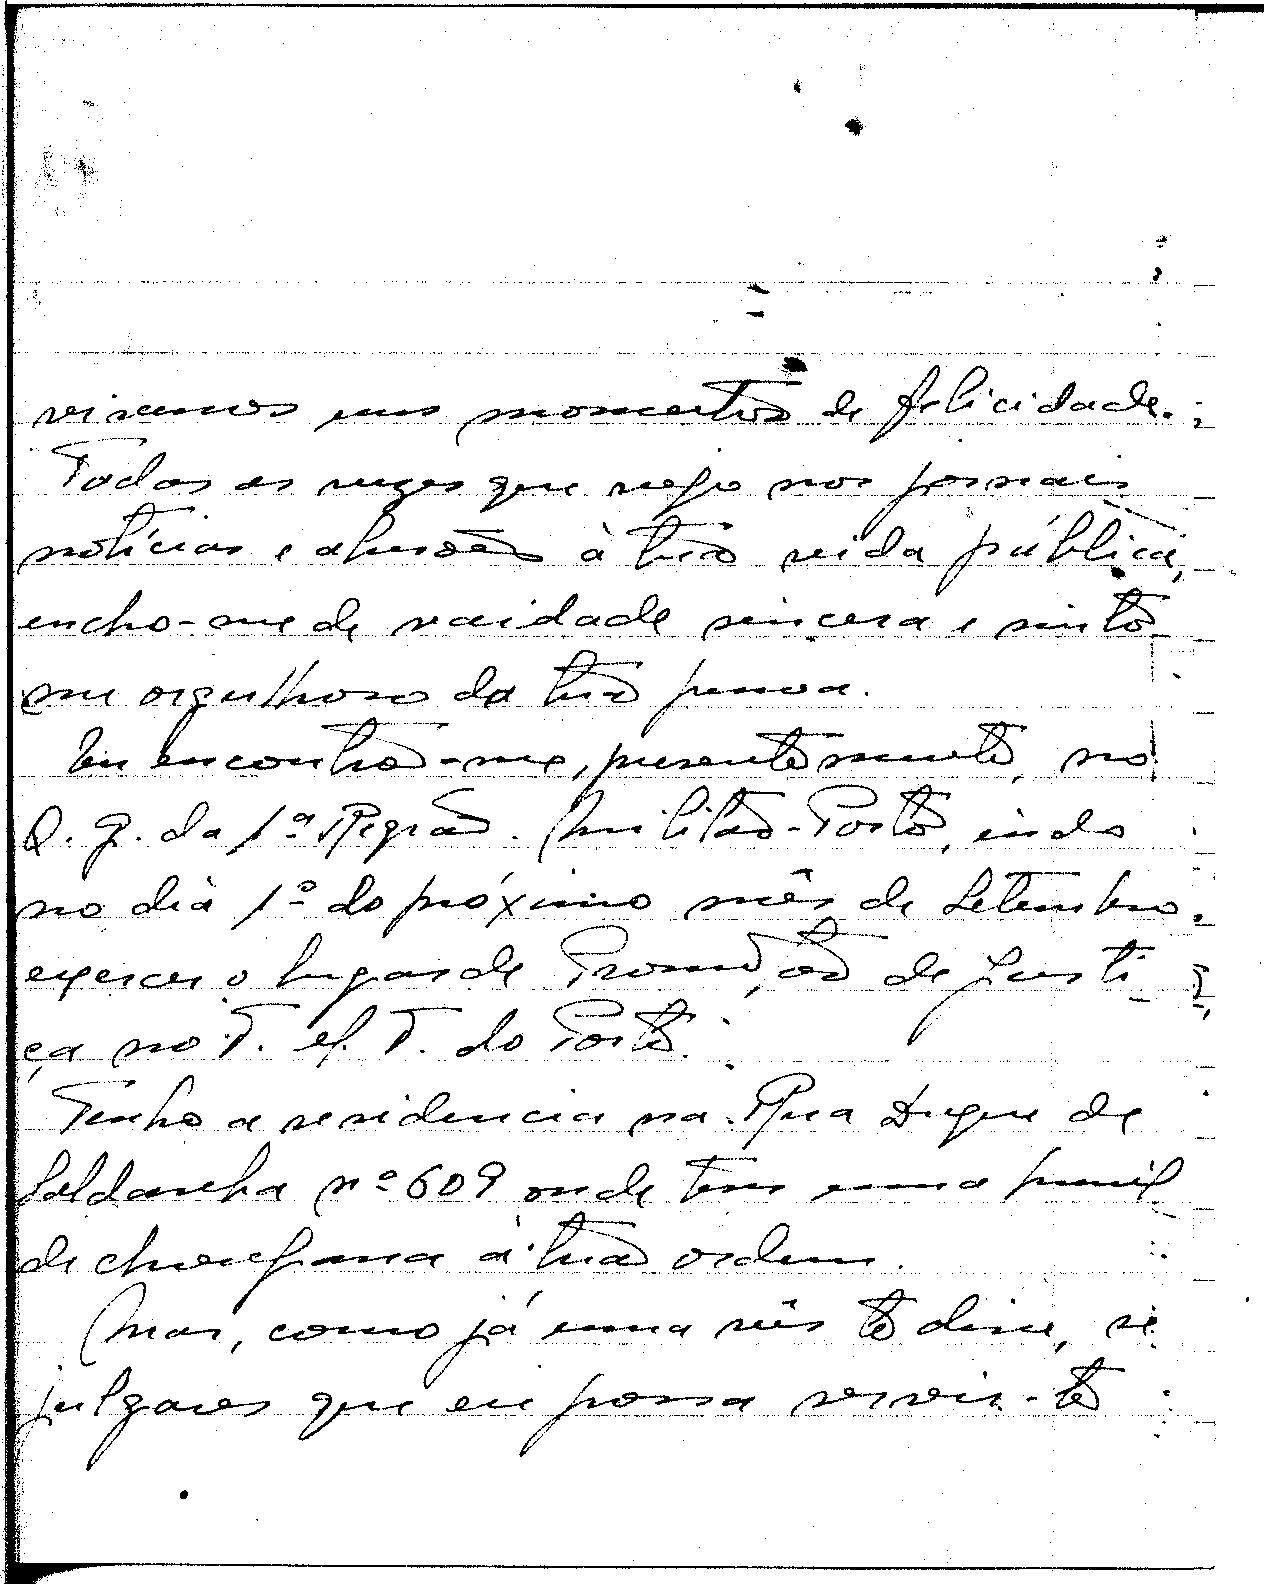 vivemos uns momentos de felicidade.
Todas as vezes que vejo nos jornais
notícias e alusões à tua vida pública,
encho-me de vaidade sincera e sinto-
me orgulhoso da tua pessoa.
Eu encontro-me, presentemente, no
Q. G. da 1ª Região Militar-Porto, indo
no dia 1º do próximo mês de Setembro
exercer o lugar de Promotor de Justi
ça no T. M. T. do Porto.
Tenho a residencia na Rua Duque de
Saldanha nº 609 onde tens uma
à tua ordem.
Mas, como já uma vês te disse, se
julgares que eu possa servir-te